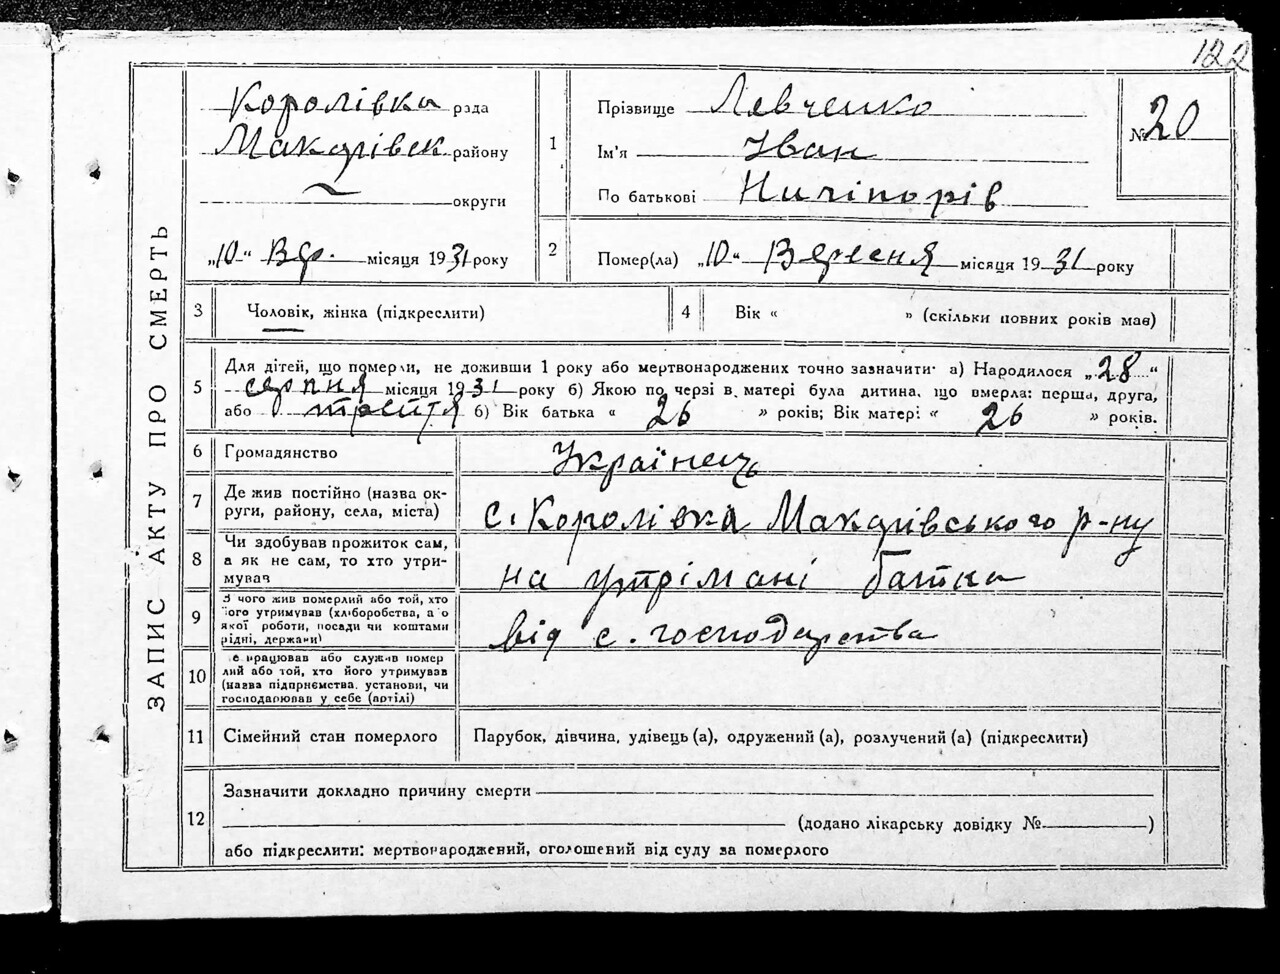 122
ЗАПИС АКТУ ПРО СМЕРТЬ
Королівка рада
Макарівськ району
округи
„10“ Вер. місяця 1931 року
1 Прізвище Левченко
Ім'я Іван
По батькові Ничіпорів
№ 20
2 Помер(ла) „10“ Вересня місяця 1931 року
3 Чоловік, жінка (підкреслити)
4 Вік « » (скільки повних років мав)
5 Для дітей, що померли, не доживши 1 року або мертвонароджених точно зазначити: а) Народилося „28“
серпня місяця 1931 року б) Якою по черзі в матері була дитина, що вмерла: перша, друга,
або третя б) Вік батька « 26 » років; Вік матері « 26 » років.
6 Громадянство Українець
7 Де жив постійно (назва ок-
руги, району, села, міста) с. Королівка Макарівського р-ну
8 Чи здобував прожиток сам,
а як не сам, то хто утри-
мував на утрімані батка
9 З чого жив померлий або той, хто
його утримував (хліборобства, або
якої роботи, посади чи коштами
рідні, держави) від с. господарства
10 Де працював або служив помер
лий або той, хто його утримував
(назва підприємства, установи, чи
господарював у себе (артілі)
11 Сімейний стан померлого Парубок, дівчина, удівець (а), одружений (а), розлучений (а) (підкреслити)
12 Зазначити докладно причину смерти
(додано лікарську довідку № )
або підкреслити: мертвонароджений, оголошений від суду за померлого